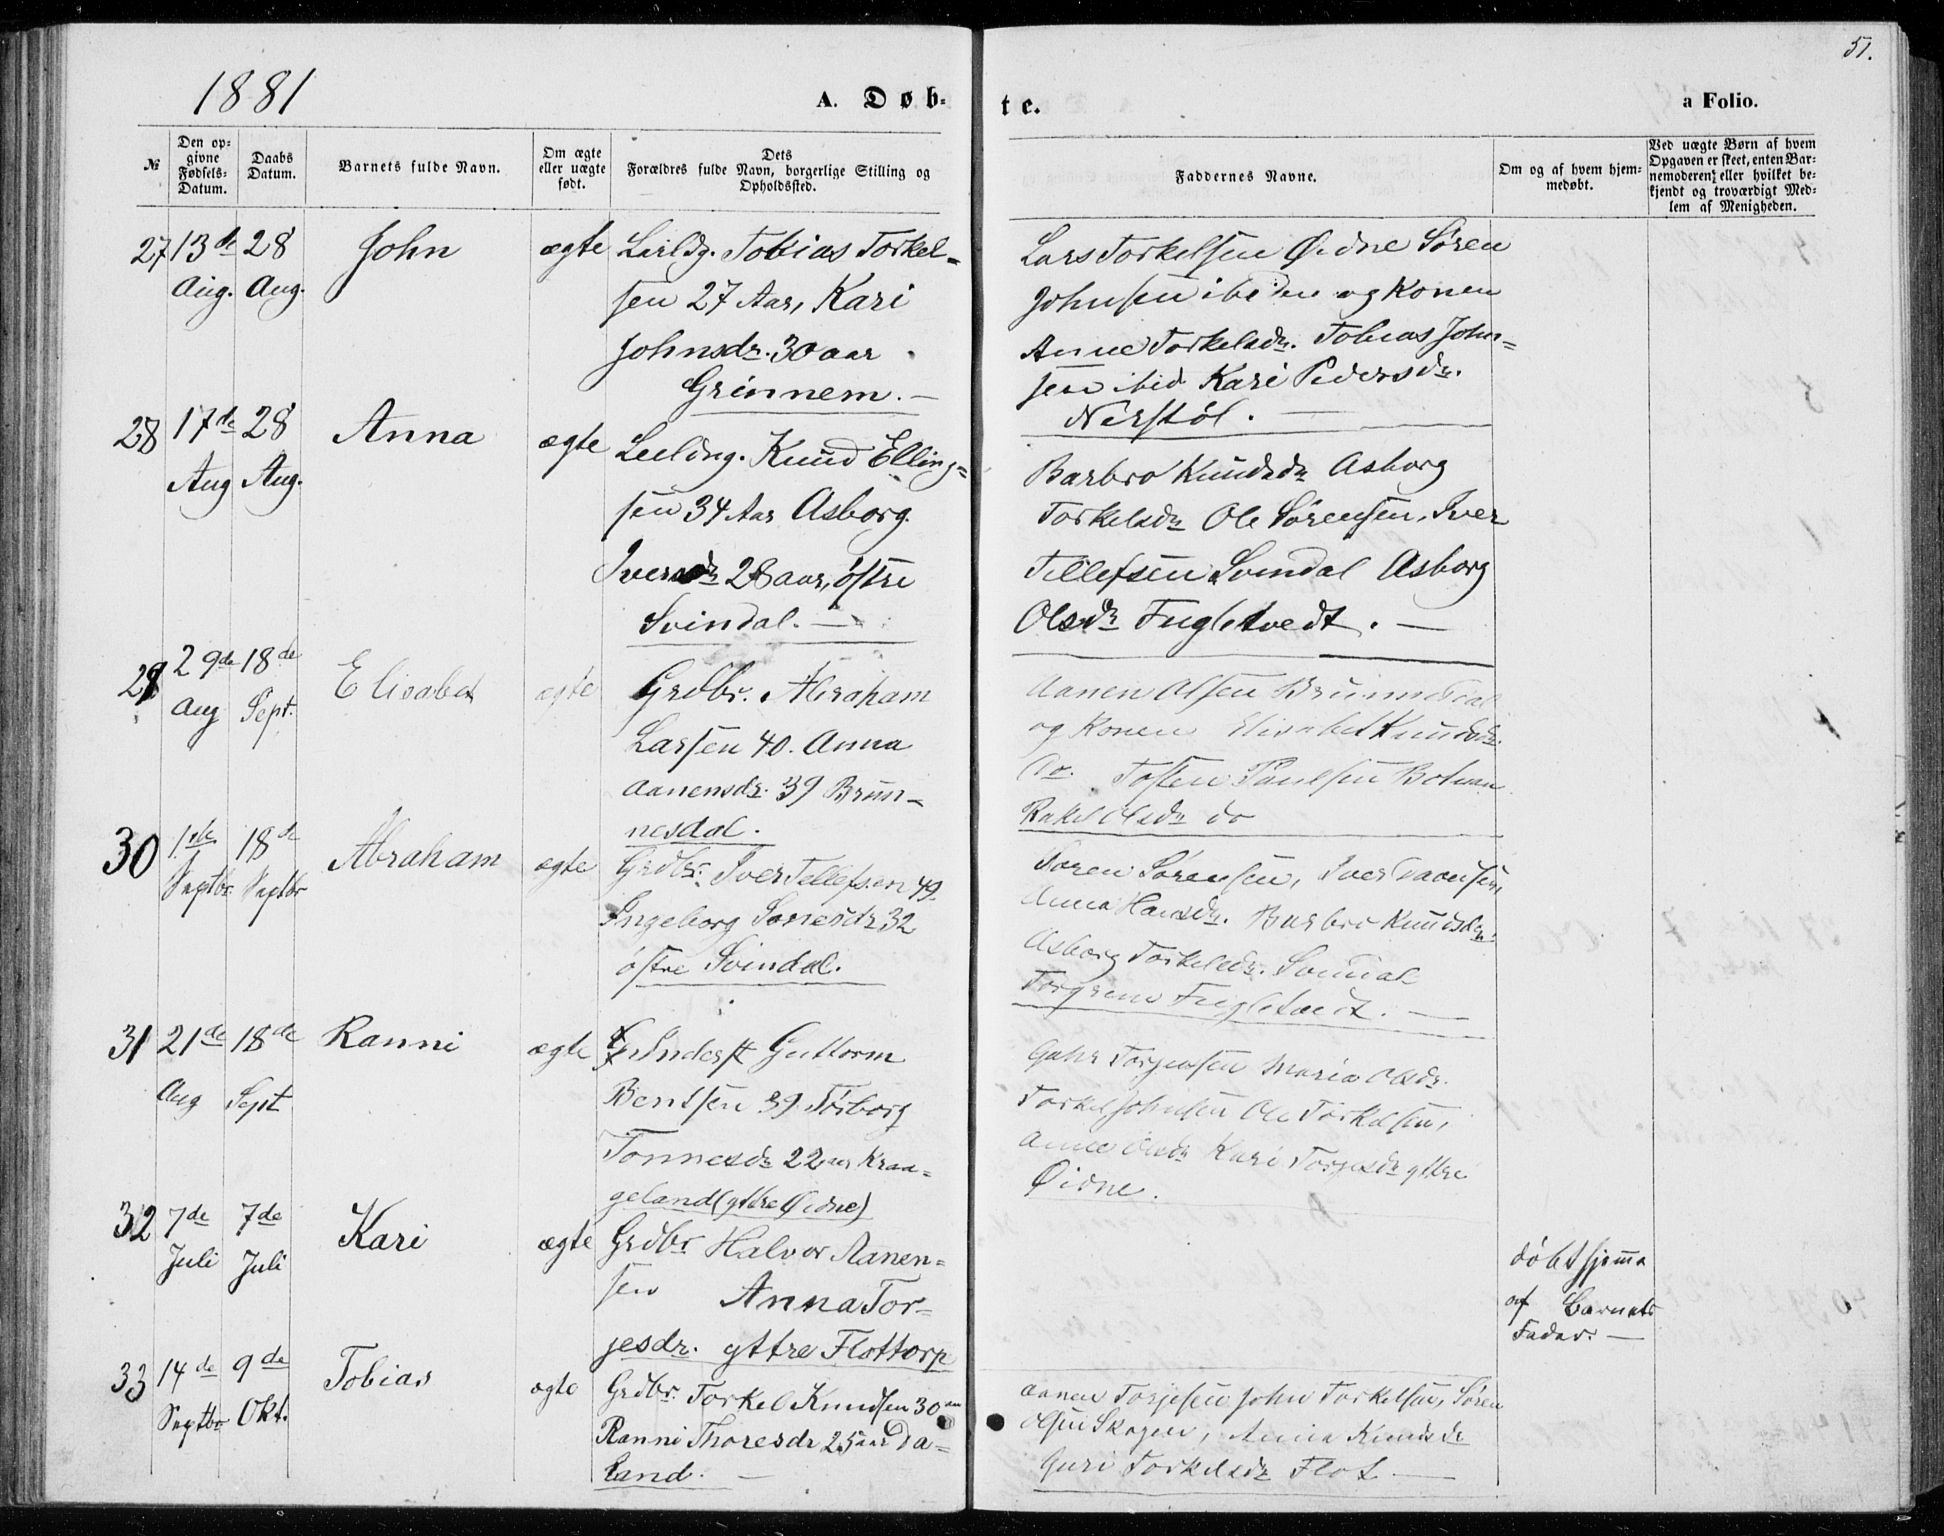 51.
1881
A. Døb-
te.
a Folio.
№
Den op-
givne
Fødsels-
Datum.
Daabs
Datum.
Barnets fulde Navn.
Om ægte
eller uægte
født.
Dets
Forældres fulde Navn, borgerlige Stilling og
Opholdssted.
Faddernes Navne.
Om og af hvem hjem-
medøbt.
Ved uægte Børn af hvem
Opgaven er skeet, enten Bar-
nemoderen, eller hvilket be-
kjendt og troværdigt Med-
lem af Menigheden.
27 13de Aug. 28 Aug. John ægte
Tobias Torkel-
sen 27 Aar, Kari
Johnsdr. 30 aar
Grinnem. —
Lars Torkelsen Øidne Søren
Johnsen ibiden og Konen
Anne Torkelsdr. Tobias John-
sen ibid Kari Pedersdr.
Nerstøl. —
28 17de Aug 28 Aug. Anna ægte
Knud Elling-
sen 34 Aar Asborg
Iversdr 28 aar, østre
Svindal. —
Barbro Knudsdr Asborg
Torkelsdr Ole Sørensen, Iver
Tellefsen Svindal Asborg
Olsdr Fugletvedt. —
29 29de Aug 18de Sept. Elisabet ægte
Grdbr. Abraham
Larsen 40. Anna
Aanensdr. 39 Brun-
nesdal.
Aanen Olsen Brunnesdal
og Konen Elisabet Knudsdr.
do. Tosten Paulsen
Rakel Olsdr do
30 1ste Septbr 18de Septbr Abraham ægte
Grdbr. Iver Tellefsen 49.
Ingeborg 32
østre Svindal.
Søren Sørensen, Iver
Anna Hansdr. Barbro Knudsdr.
Asborg Torkelsdr. Svindal
Fugletvedt. —
31 21de Aug 18de Sept Ranni ægte
Guttorm
Bentsen 39. Torborg
Tonnesdr 22 aar Kraa-
geland (yttre Øidne)
Torgensen Maria Olsdr.
Torkel Johnsen Ole Torkelsen,
Anne Olsdr Kari Torjesdr yttre
Øidne.
32 7de Juli 7de Juli Kari ægte
Grdbr Halvor Aanen-
sen Anna Tor-
jesdr. yttre Flottorp
døbt hjemme
af Barnets
Fader. —
33 14de Septbr 9de Okt. Tobias ægte
Grdbr. Torkel Knudsen 30 aar
Ranni Thoresdr 25 aar Da-
land. —
Aanen Torjesen John Torkelsen, Søren
Olsen Skogen, Anna Knudsdr
Guri Torkelsdr Flot —